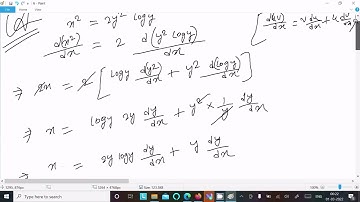 x² = 2y² log y
[ d(uv)/dx = v du/dx + u dv/dx ]
d(x²)/dx = 2 d(y² log y)/dx
2x = 2 [ log y d(y²)/dx + y² d(log y)/dx ]
⇒ x = log y 2y dy/dx + y² × 1/y dy/dx
⇒ x = 2y log y dy/dx + y dy/dx